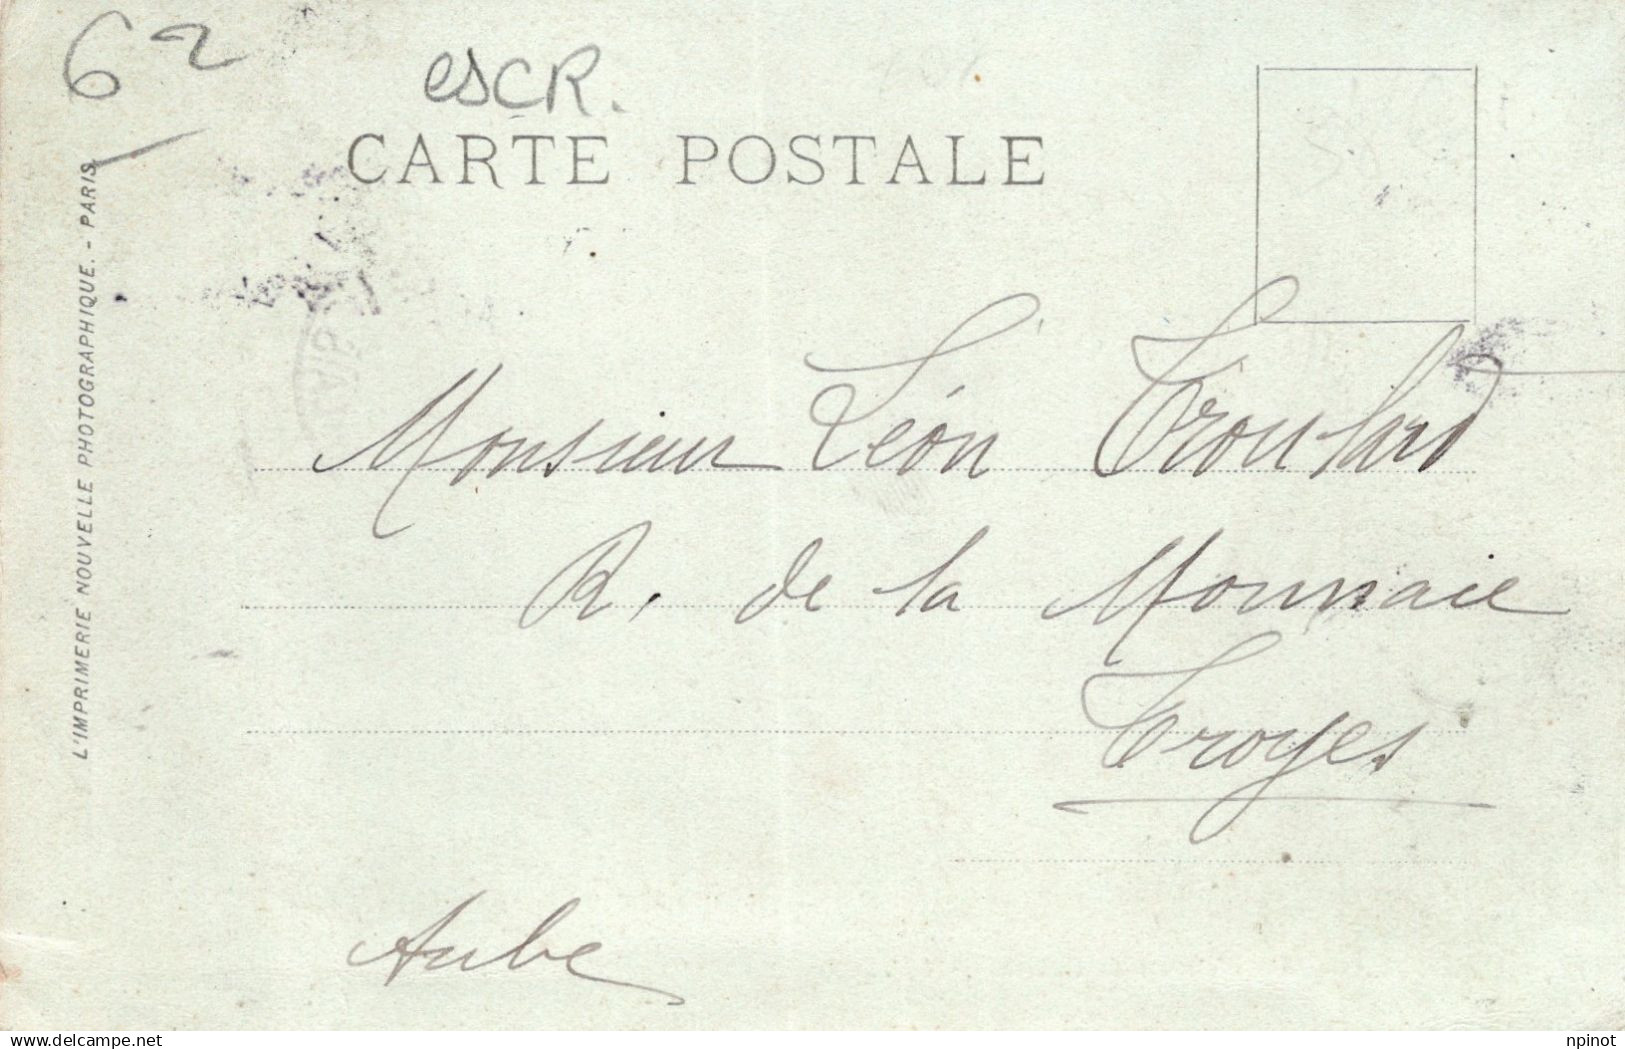 62
escR.
CARTE POSTALE
L'IMPRIMERIE NOUVELLE PHOTOGRAPHIQUE. - PARIS
Monsieur Léon
R. de la Monnaie
Troyes
Aube
delcampe.net
npinot